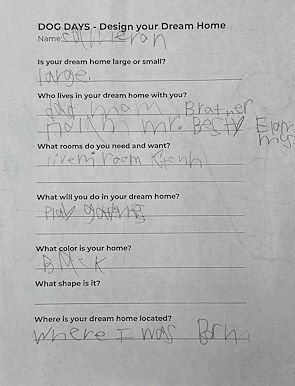 DOG DAYS - Design your Dream Home
Name:
Is your dream home large or small?
large.
Who lives in your dream home with you?
dad mom Brother
mr. Besty
What rooms do you need and want?
room
What will you do in your dream home?
Play games
What color is your home?
Black
What shape is it?
Where is your dream home located?
where I was Born